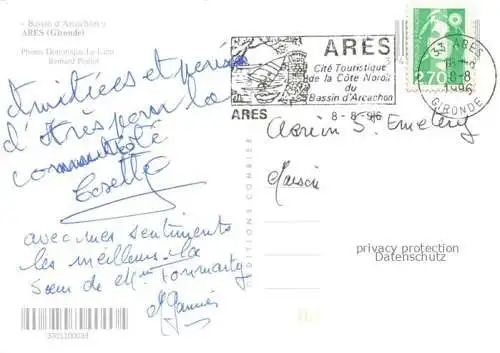 « Bassin d'Arcachon »
ARES (Gironde)
Photos Dominique Le Lann
Bernard
Amitiées et
d'Arès pour la
communauté
Cosette
avec mes sentiments
les meilleurs. La
Sœur de Mme
ARES
Cité Touristique
de la Côte Nord
du
Bassin d'Arcachon
ARES
8-8-96
2,70
33 ARES
8-8
1996
GIRONDE
EDITIONS COMBIER
S.
Maison
privacy protection
Datenschutz